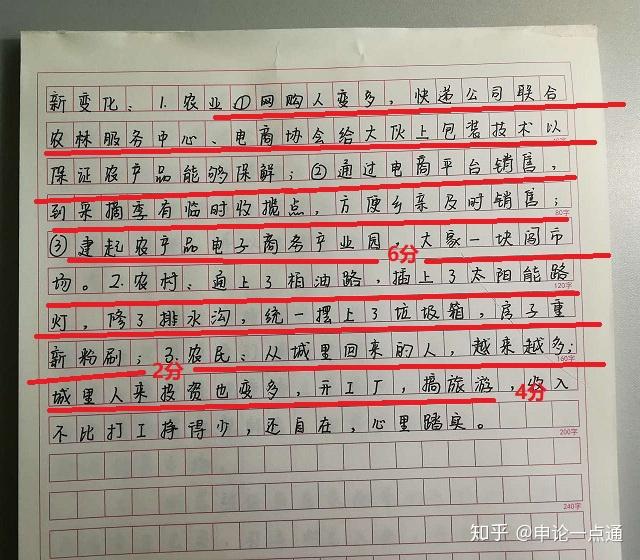 新变化：1.农业①网购人变多，快递公司联合
农林服务中心、电商协会给大伙上包装技术以
保证农产品能够保鲜；②通过电商平台销售，
到采摘季有临时收揽点，方便乡亲及时销售；
80字
③建起农产品电子商务产业园，大家一块闯市
6分
场。2.农村：遍上了柏油路，插上了太阳能路
120字
灯，修了排水沟，统一摆上了垃圾箱，房子重
新粉刷；3.农民：从城里回来的人，越来越多；
2分
160字
城里人来投资也变多，开工厂，搞旅游，收入
4分
不比打工挣得少，还自在，心里踏实。
200字
240字
知乎 @申论一点通